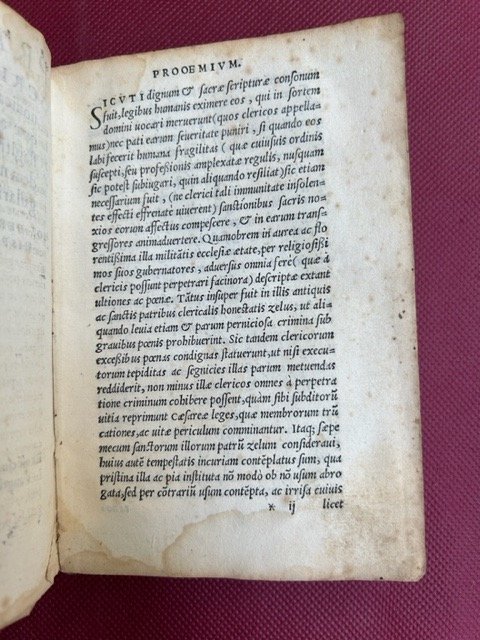 PROOEMIVM.
SICVTI dignum & sacræ scripturæ consonum
fuit, legibus humanis eximere eos, qui in sortem
domini uocari meruerunt (quos clericos appella-
mus) nec pati earum seueritate puniri, si quando eos
labi fecerit humana fragilitas (quæ cuiusuis ordinis
suscepti, seu professionis amplexatæ regulis, nusquam
sic potest subiugari, quin aliquando resiliat) sic etiam
necessarium fuit, (ne clerici tali immunitate insolen-
tes effecti effrenate uiuerent) sanctionibus sacris no-
xios eorum affectus compescere, & in earum trans-
gressores animaduertere. Quamobrem in aurea ac flo
rentissima illa militātis ecclesiæ ætate, per religiosissi
mos suos gubernatores, aduersus omnia ferè (quæ à
clericis possunt perpetrari facinora) descriptæ extant
ultiones ac pœnæ. Tātus insuper fuit in illis antiquis
ac sanctis patribus clericalis honestatis zelus, ut ali-
quando leuia etiam & parum perniciosa crimina sub
grauibus pœnis prohibuerint. Sic tandem clericorum
excessibus pœnas condignas statuerunt, ut nisi execu-
torum tepiditas ac segnicies illas parum metuendas
reddiderit, non minus illæ clericos omnes à perpetra
tione criminum cohibere possent, quàm sibi subditorū
uitia reprimunt Cæsareæ leges, quæ membrorum trū
cationes, ac uitæ periculum comminantur. Itaq; sæpe
mecum sanctorum illorum patrū zelum consideraui,
huius autē tempestatis incuriam contēplatus sum, qua
pristina illa ac pia instituta nō modò ob nō usum abro
gata, sed per cōtrariū usum contēpta, ac irrisa cuiuis
* ij licet